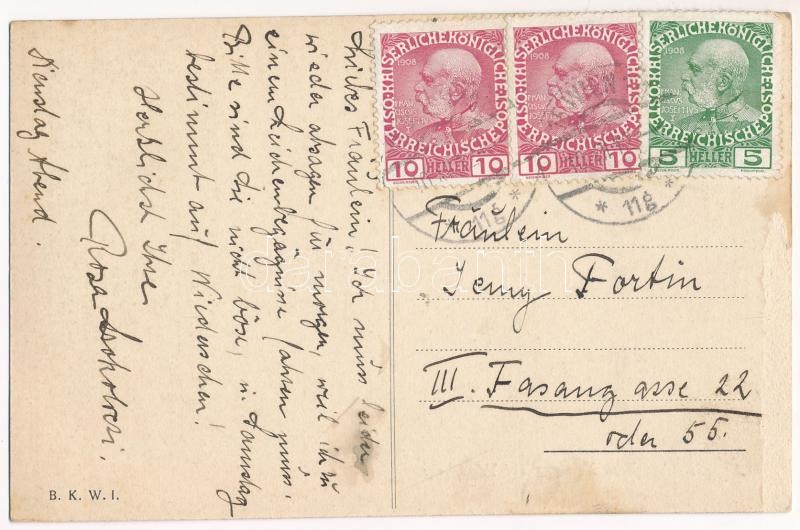 Liebes Fräulein! Ich muss leider
wieder absagen für morgen, weil ich zu
einem Leichenbegängnisse fahren muss.
Bitte sind Sie nicht böse, u. Samstag
bestimmt auf Wiedersehen!
Herzlichst Ihre
Rosa
Dienstag Abend.
B. K. W. I.
KAISERLICHEKÖNIGLICHE
ÖSTERREICHISCHE POST
1908
FRAN
CISCUS
JOSEPHUS
I
10 HELLER 10
KAISERLICHEKÖNIGLICHE
ÖSTERREICHISCHE POST
1908
FRAN
CISCUS
JOSEPHUS
I
10 HELLER 10
KAISERLICHEKÖNIGLICHE
ÖSTERREICHISCHE POST
1908
FRAN
CISCUS
JOSEPHUS
I
5 HELLER 5
WIEN
* 11g *
* 11g *
Fräulein
Jenny Fortin
III. Fasangasse 22
oder 55.
darabanth